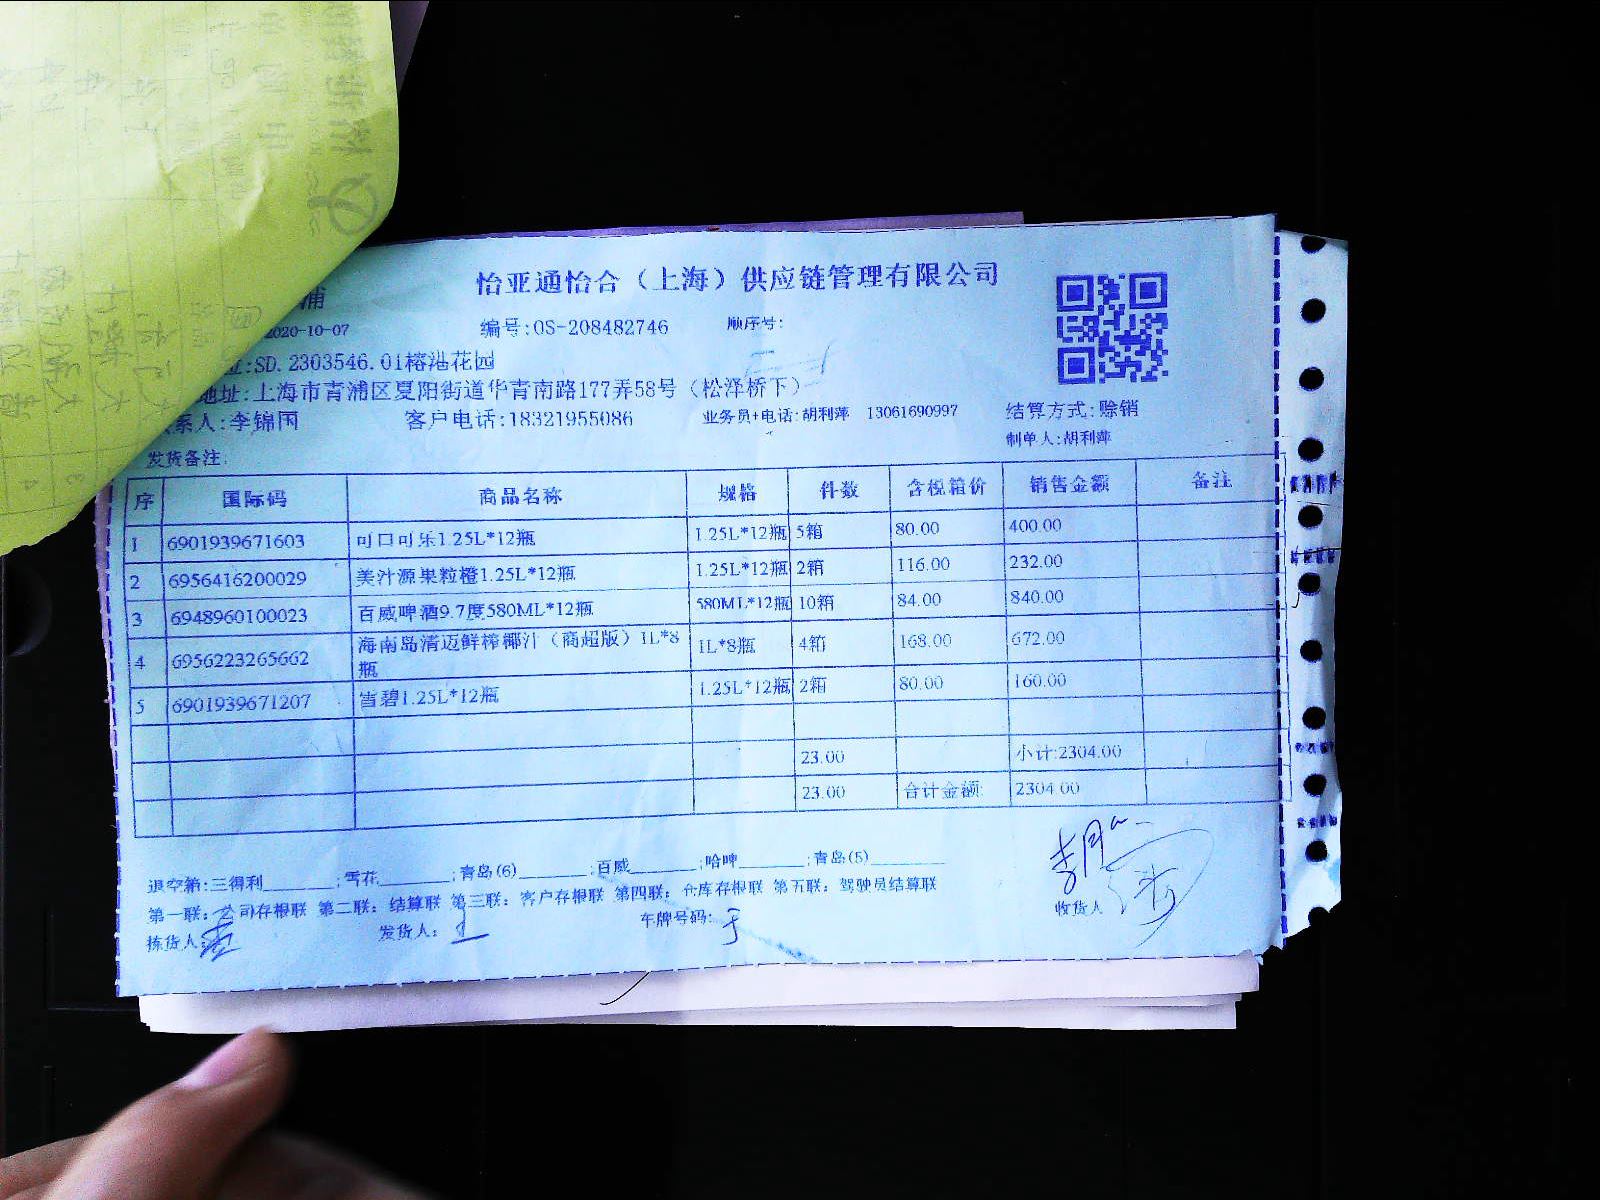 怡亚通怡合（上海）供应链管理有限公司
浦
2020-10-07 编号:OS-208482746 顺序号:
址:SD.2303546.01榕港花园
地址:上海市青浦区夏阳街道华青南路177弄58号（松泽桥下）
系人:李锦国 客户电话:18321955086 业务员+电话:胡利萍 13061690997 结算方式:赊销
制单人:胡利萍
发货备注:
序 国际码 商品名称 规格 件数 含税箱价 销售金额 备注
1 6901939671603 可口可乐1.25L*12瓶 1.25L*12瓶 5箱 80.00 400.00
2 6956416200029 美汁源果粒橙1.25L*12瓶 1.25L*12瓶 2箱 116.00 232.00
3 6948960100023 百威啤酒9.7度580ML*12瓶 580ML*12瓶 10箱 84.00 840.00
4 6956223265662 海南岛清迈鲜榨椰汁（商超版）1L*8瓶 1L*8瓶 4箱 168.00 672.00
5 6901939671207 雪碧1.25L*12瓶 1.25L*12瓶 2箱 80.00 160.00
23.00 小计:2304.00
23.00 合计金额: 2304.00
退空箱:三得利_______;雪花_______;青岛(6)_______;百威_______;哈啤_______;青岛(5)_______
第一联：公司存根联 第二联：结算联 第三联：客户存根联 第四联：仓库存根联 第五联：驾驶员结算联
拣货人: 发货人: 车牌号码: 收货人